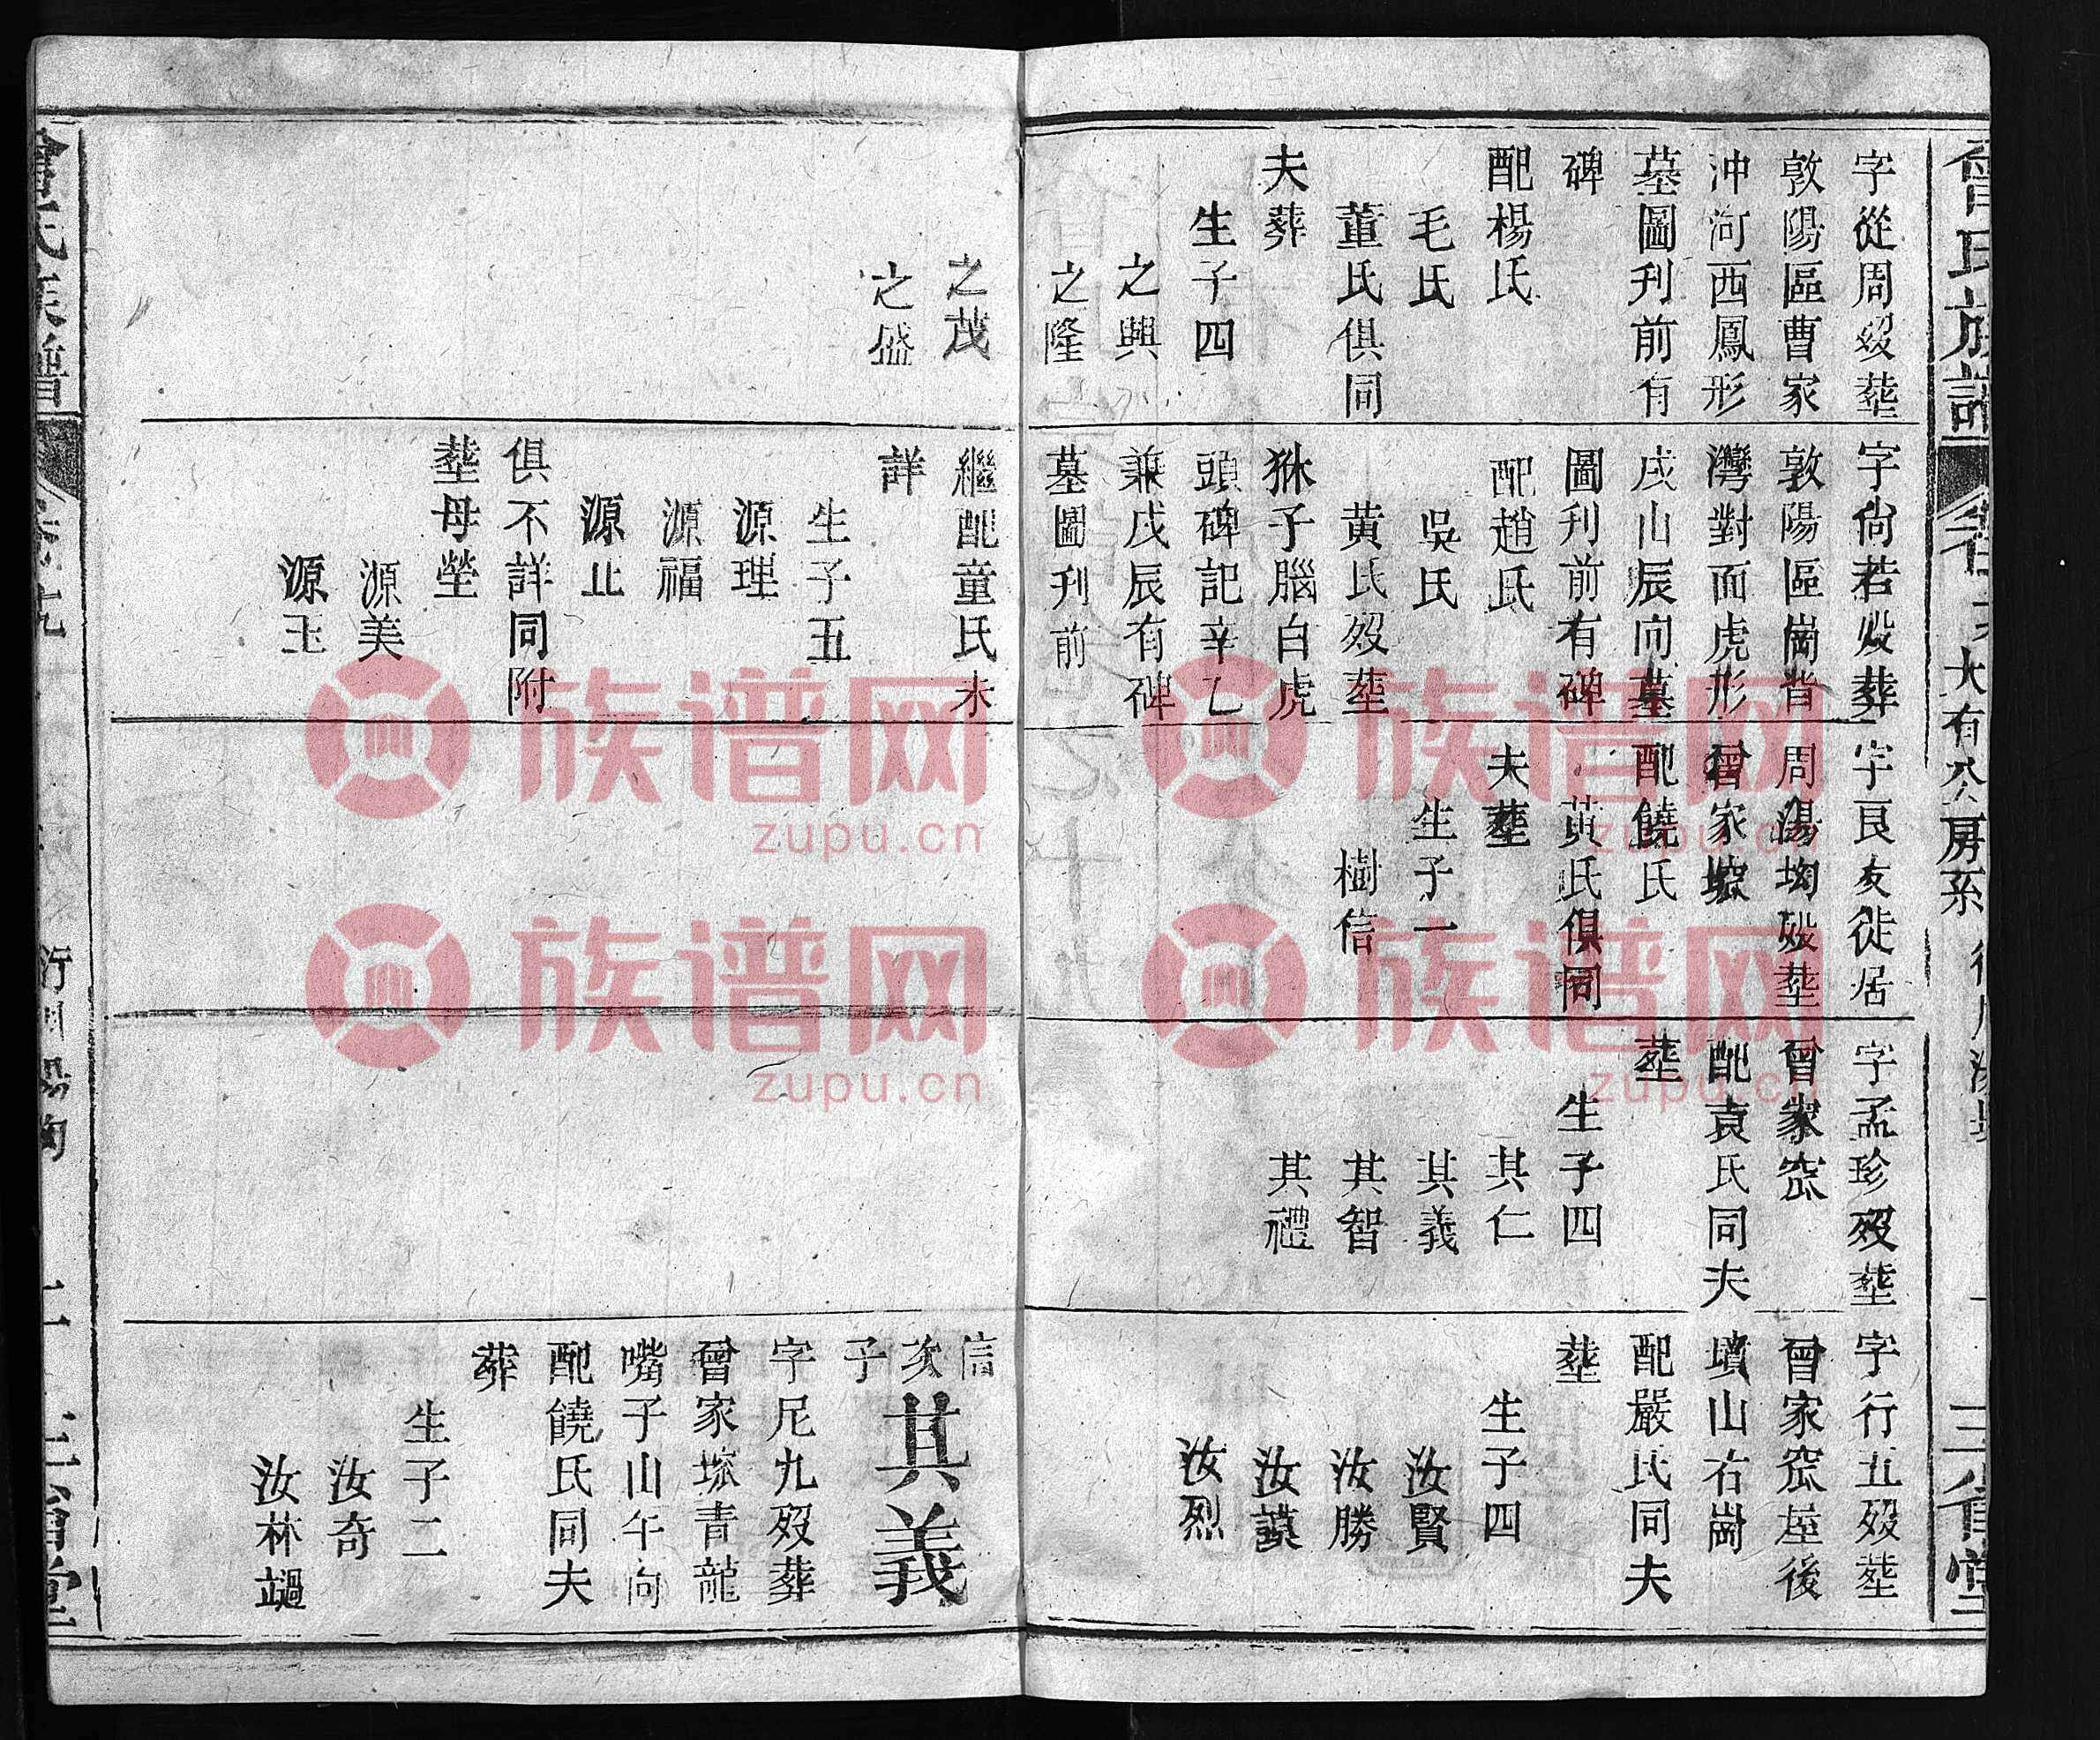 曾氏族譜
大有公房系
字從周歿塟
敦陽區曹家
沖河西鳳形
墓圖刋前有
碑
配楊氏
毛氏
董氏俱同
夫葬
生子四
之興
之隆
字尙若歿葬
敦陽區崗背
灣對面虎形
戌山辰向墓
圖刋前有碑
配趙氏
吳氏
黃氏歿塟
猍子腦白虎
頭碑記辛乙
兼戌辰有碑
墓圖刋前
字良友徙居
周湯坳歿塟
曾家塝
配饒氏
黃氏俱同
夫塟
生子一
樹信
字孟珍歿塟
曾家窊
配袁氏同夫
塟
生子四
其仁
其義
其智
其禮
字行五歿塟
曾家窊屋後
墳山右崗
配嚴氏同夫
塟
生子四
汝賢
汝勝
汝謨
汝烈
之茂
之盛
繼配童氏未
詳
生子五
源理
源福
源止
俱不詳同附
塟母塋
源美
源玉
信次子
其義
字尼九歿葬
曾家塝青龍
嘴子山午向
配饒氏同夫
葬
生子二
汝奇
汝林
曾氏族譜
二
三省堂
族谱网
zupu.cn
族谱网
zupu.cn
族谱网
zupu.cn
族谱网
zupu.cn